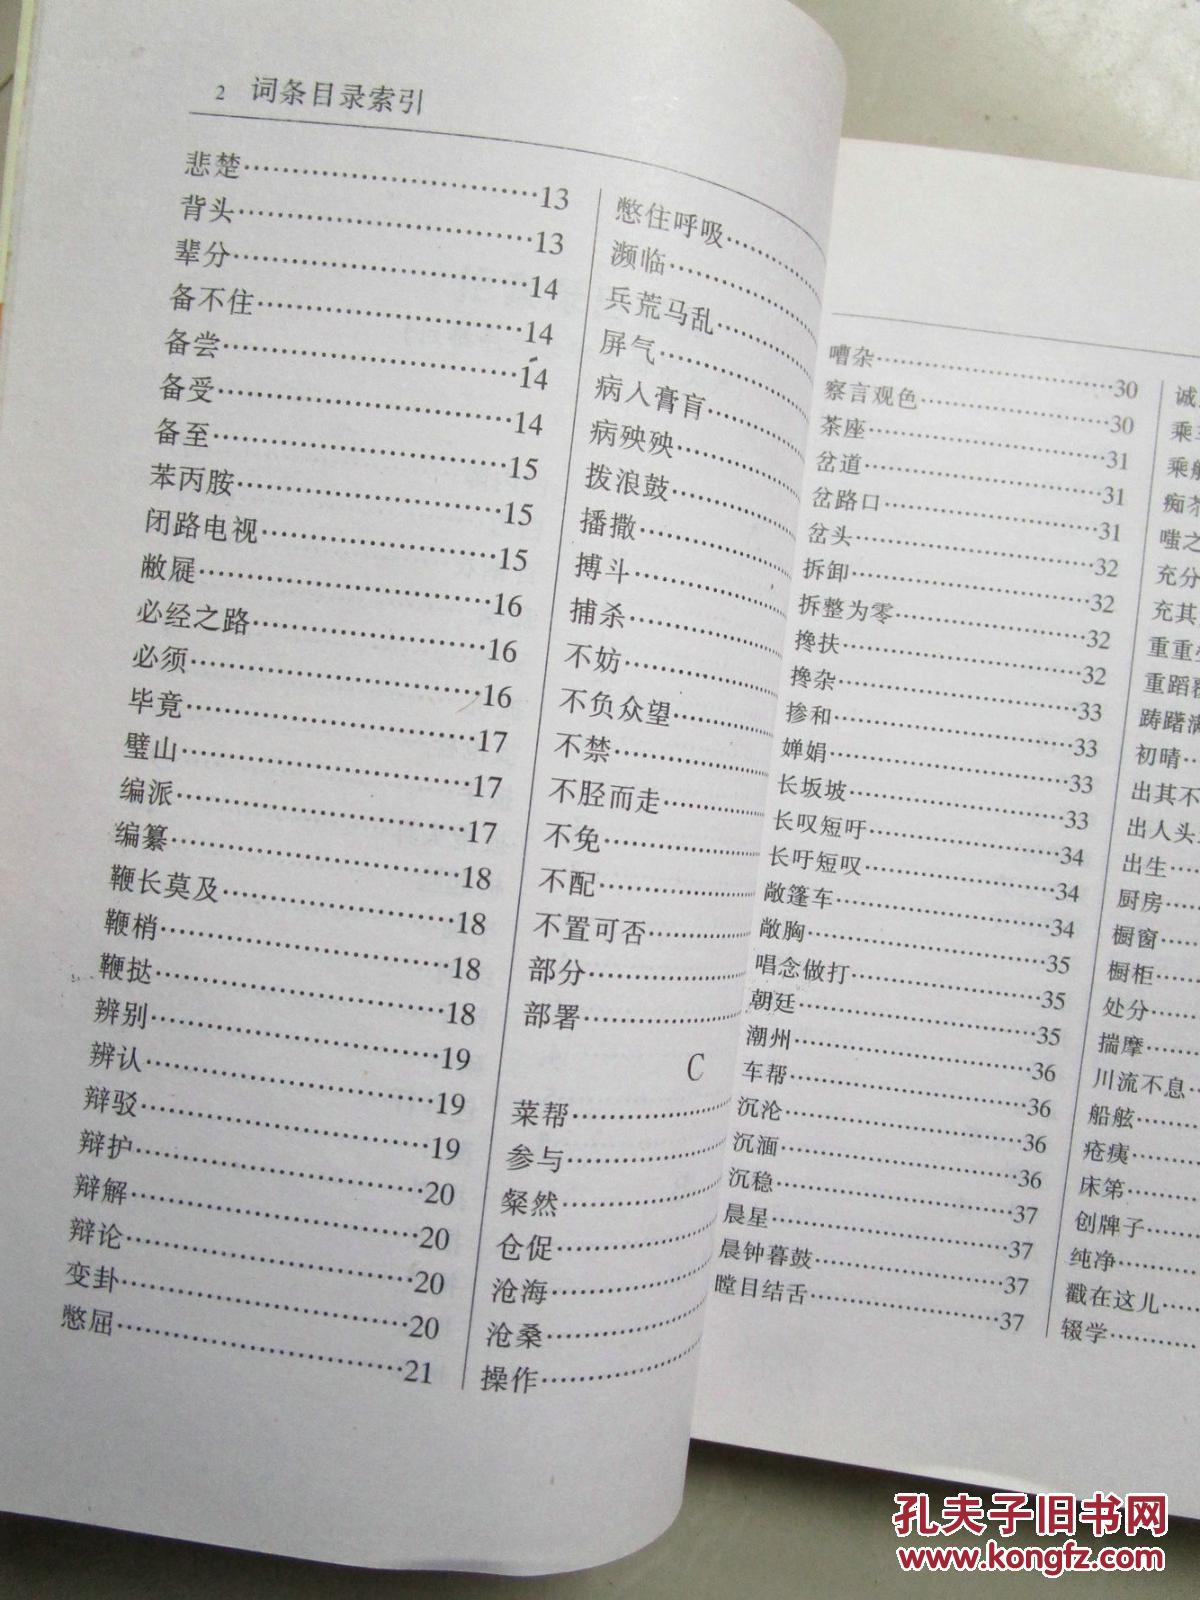 2 词条目录索引
悲楚…………13
背头…………13
辈分…………14
备不住…………14
备尝…………14
备受…………14
备至…………15
苯丙胺…………15
闭路电视…………15
敝屣…………16
必经之路…………16
必须…………16
毕竟…………17
璧山…………17
编派…………17
编纂…………18
鞭长莫及…………18
鞭梢…………18
鞭挞…………18
辨别…………19
辨认…………19
辩驳…………19
辩护…………20
辩解…………20
辩论…………20
变卦…………20
憋屈…………21
憋住呼吸…………
濒临…………
兵荒马乱…………
屏气…………
病入膏肓…………
病殃殃…………
拨浪鼓…………
播撒…………
搏斗…………
捕杀…………
不妨…………
不负众望…………
不禁…………
不胫而走…………
不免…………
不配…………
不置可否…………
部分…………
部署…………
C
菜帮…………
参与…………
粲然…………
仓促…………
沧海…………
沧桑…………
操作…………
嘈杂…………30
察言观色…………30
茶座…………31
岔道…………31
岔路口…………31
岔头…………32
拆卸…………32
拆整为零…………32
搀扶…………32
搀杂…………33
掺和…………33
婵娟…………33
长坂坡…………33
长叹短吁…………34
长吁短叹…………34
敞篷车…………34
敞胸…………35
唱念做打…………35
朝廷…………35
潮州…………36
车帮…………36
沉沦…………36
沉湎…………36
沉稳…………37
晨星…………37
晨钟暮鼓…………37
瞠目结舌…………37
诚
乘
乘
痴
嗤之
充分
充其
重重
重蹈覆
踌躇满
初晴…
出其不
出人头
出生…
厨房…
橱窗…
橱柜…
处分…
揣摩…
川流不息…
船舷…
疮痍…
床笫…
创牌子…
纯净…
戳在这儿…
辍学…
孔夫子旧书网
www.kongfz.com